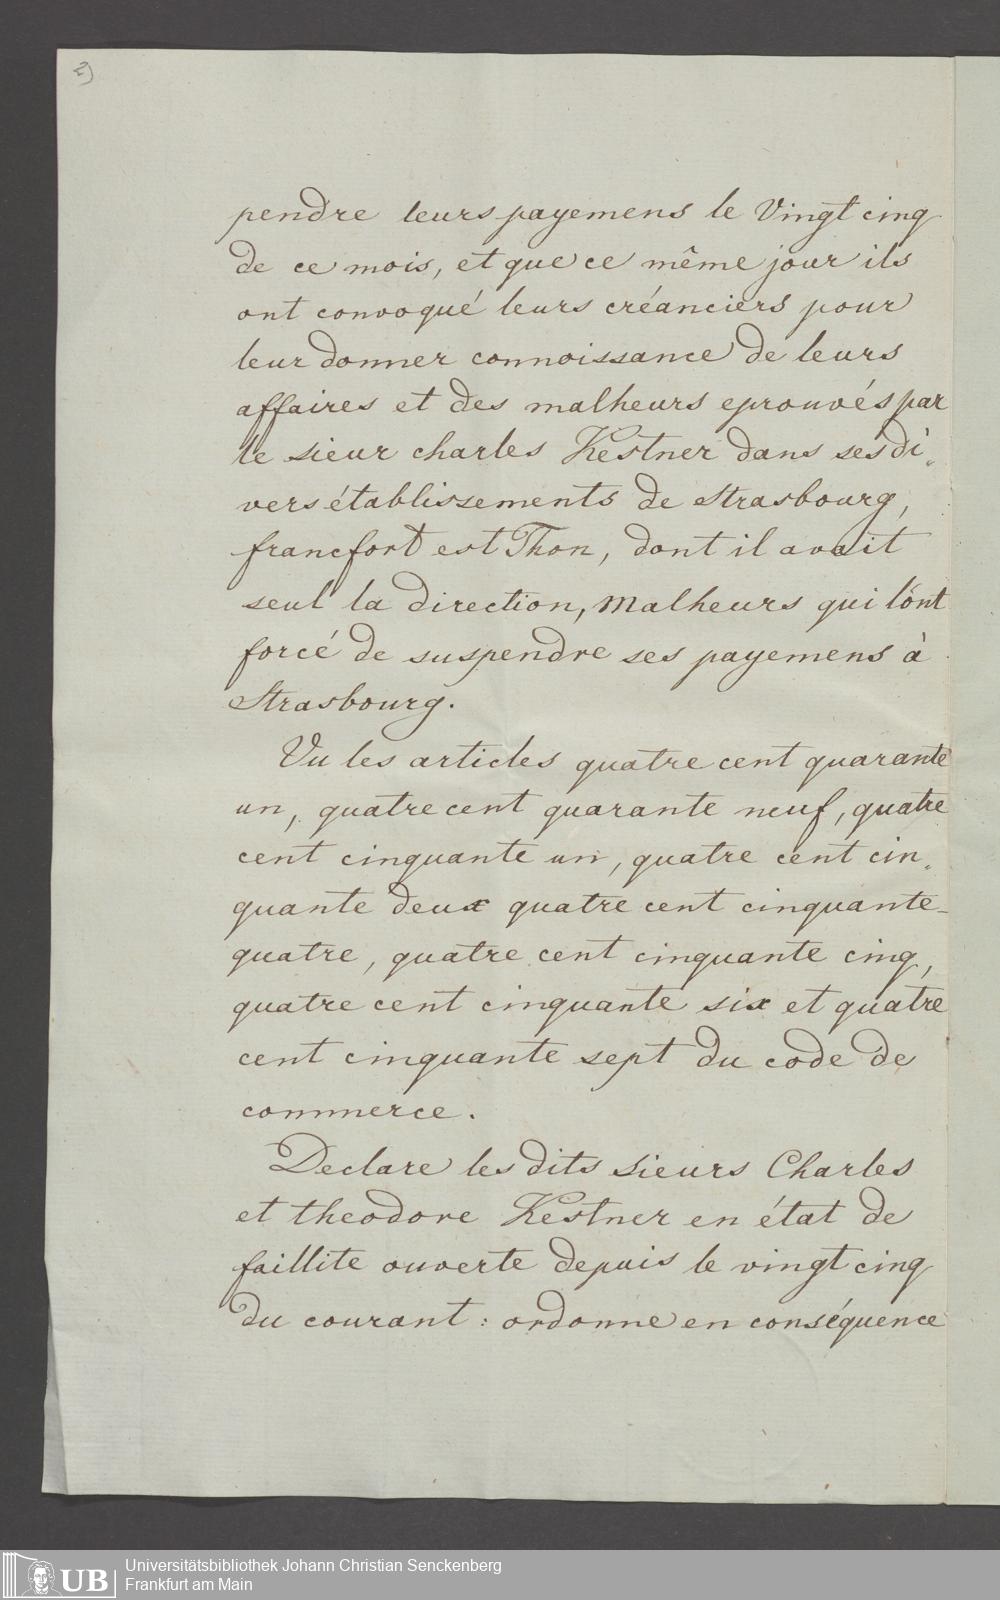 2)
pendre leurs payemens le Vingt cinq
de ce mois, et que ce même jour ils
ont convoqué leurs créanciers pour
leur donner connoissance de leurs
affaires et des malheurs eprouvés par
le sieur charles Kestner dans ses di„
vers établissements de Strasbourg,
francfort est Thon, dont il avait
seul la direction, malheurs qui l'ont
forcé de suspendre ses payemens à
Strasbourg.
Vu les articles quatre cent quarante
un, quatre cent quarante neuf, quatre
cent cinquante un, quatre cent cin„
quante deux quatre cent cinquante-
quatre, quatre cent cinquante cinq,
quatre cent cinquante six et quatre
cent cinquante sept du code de
commerce.
Declare les dits sieurs Charles
et theodore Kestner en état de
faillite ouverte depuis le vingt cinq
du courant : ordonne en conséquence
UB
Universitätsbibliothek Johann Christian Senckenberg
Frankfurt am Main